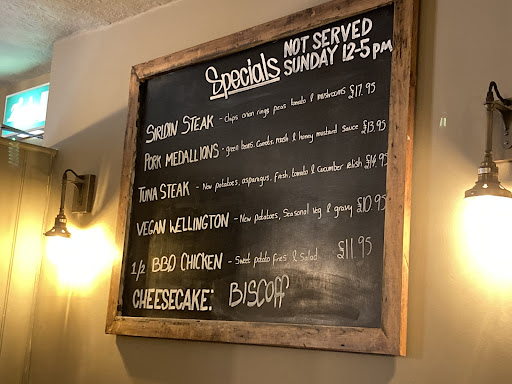 Specials NOT SERVED
SUNDAY 12-5pm
SIRLOIN STEAK - chips onion rings peas tomato & mushrooms £17.95
PORK MEDALLIONS - green beans, carrots, mash & honey mustard sauce £13.95
TUNA STEAK - New potatoes, asparagus, fresh, tomato & cucumber relish £14.95
VEGAN WELLINGTON - New potatoes, Seasonal veg & gravy £10.95
1/2 BBQ CHICKEN - Sweet potato fries & Salad £11.95
CHEESECAKE: BISCOFF